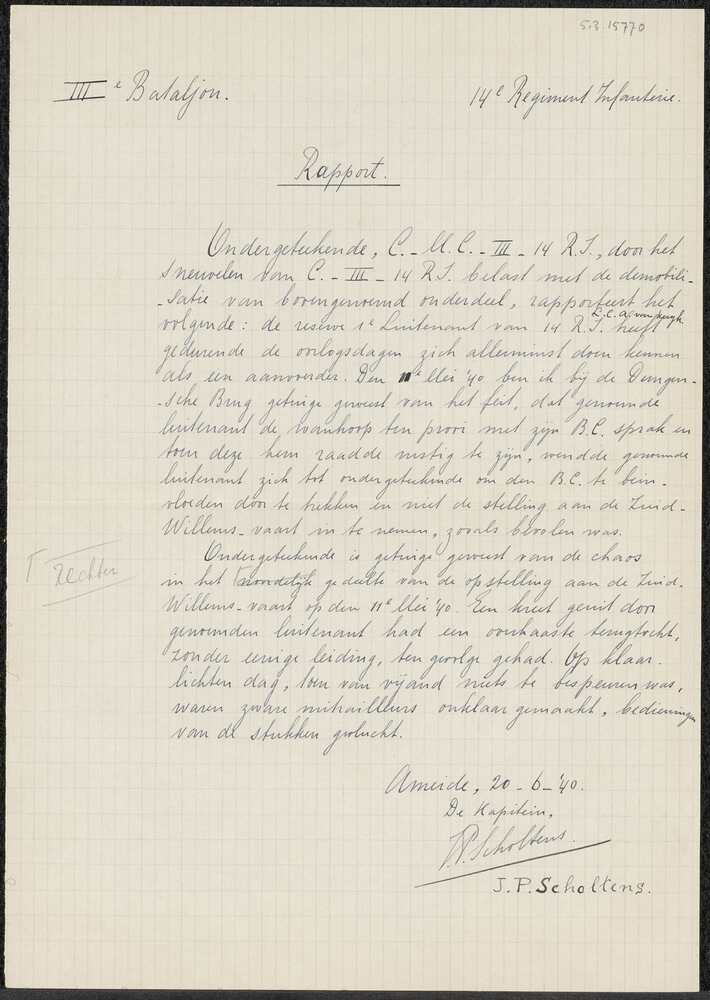 5.3 15770
IIIe Bataljon.
14e Regiment Infanterie.
Rapport.
Ondergeteekende, C.-M.C.-III-14 R.I., door het
sneuvelen van C.-III-14 R.I. belast met de demobili-
-satie van bovengenoemd onderdeel, rapporteert het
volgende: de reserve 1e Luitenant van 14 R.I. heeft
gedurende de oorlogsdagen zich allerminst doen kennen
als een aanvoerder. Den 11e Mei '40 ben ik bij de Dungen-
-sche Brug getuige geweest van het feit, dat genoemde
luitenant de wanhoop ten prooi met zijn B.C. sprak en
toen deze hem raadde rustig te zijn, wendde genoemde
luitenant zich tot ondergeteekende om den B.C. te bein-
vloeden door te trekken en niet de stelling aan de Zuid-
Willems-vaart in te nemen, zooals bevolen was.
Ondergeteekende is getuige geweest van de chaos
rechter
in het noordelijk gedeelte van de opstelling aan de Zuid-
Willems-vaart op den 11e Mei '40. Een kreet geuit door
genoemden luitenant had een overhaaste terugtocht,
zonder eenige leiding, ten gevolge gehad. Op klaar-
lichten dag, toen van vijand niets te bespeuren was,
waren zware mitrailleurs onklaar gemaakt, bedieningen
van de stukken gevlucht.
Ameide, 20-6-'40.
De Kapitein,
J.P. Scholtens.
J.P. Scholtens.